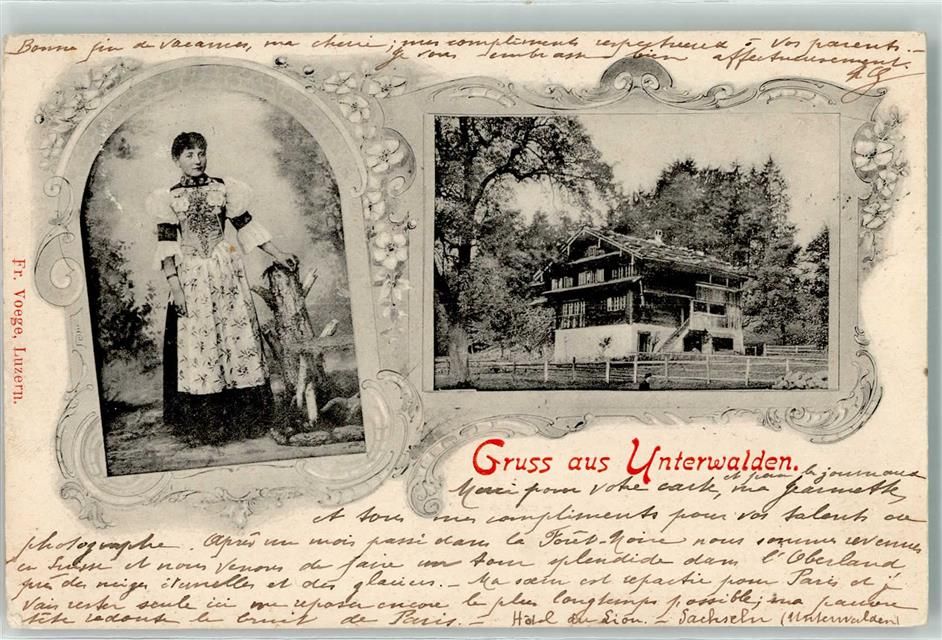 Bonne fin de vacances, ma chérie; mes compliments respectueux à vos parents.
Je vous embrasse bien affectueusement.
Fr. Voege, Luzern.
Gruss aus Unterwalden.
et pour le journaux
Merci pour votre carte, ma Jeannette,
et tous mes compliments pour vos talents de
photographe. Après un mois passé dans la Forêt-Noire nous sommes revenues
en Suisse et nous venons de faire un tour splendide dans l'Oberland
près des neiges éternelles et des glaciers. – Ma sœur est repartie pour Paris et j'
vais rester seule ici me reposer encore le plus longtemps possible; ma pauvre
tête redoute le bruit de Paris. – Hôtel du Lion. – Sachseln (Unterwalden)